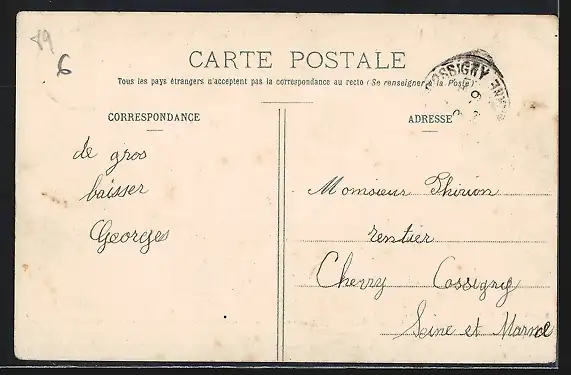 89
6
CARTE POSTALE
Tous les pays étrangers n'acceptent pas la correspondance au recto (Se renseigner à la Poste)
COSSIGNY
CORRESPONDANCE
ADRESSE
de gros
baisser
Georges
Monsieur Thirion
rentier
Chevry Cossigny
Seine et Marne